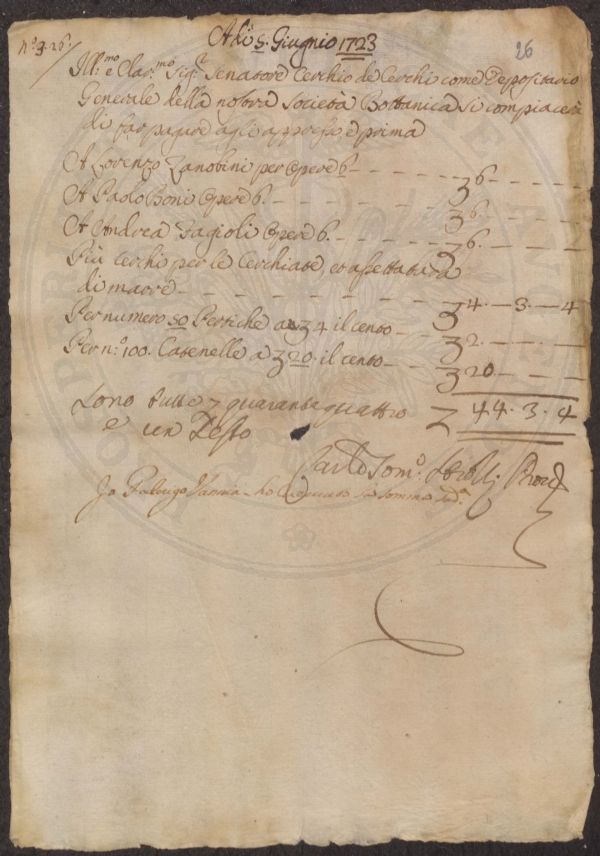 N.º 3. 26.
26
A di 5. Giugnio 1723
Ill.mo e Clar.mo Sig.r Senatore Cerchio de Cerchi come Depositario
Generale della nostra Società Bottanica si compiacerà
di far pagare agli appresso, e prima
A Lorenzo Zanobini per Opere 6 - - - Ʒ 6. - - -
A Paolo Boni Opere 6. - - - Ʒ 6. - - -
A Andrea Fagioli Opere 6. - - - Ʒ 6. - - -
Più Cerchi per le Cerchiate, et assettatura
di madre - - - Ʒ 4. — 3. — 4
Per numero 50 Pertiche a Ʒ 4 il cento - - Ʒ 2. - - -
Per n.º 100. Catenelle a Ʒ 20 il cento - - Ʒ 20 - - -
Sono tutte Ʒ quaranta quattro Ʒ 44. 3. 4
e un Testo
Io ho ricevuto la somma sud.a